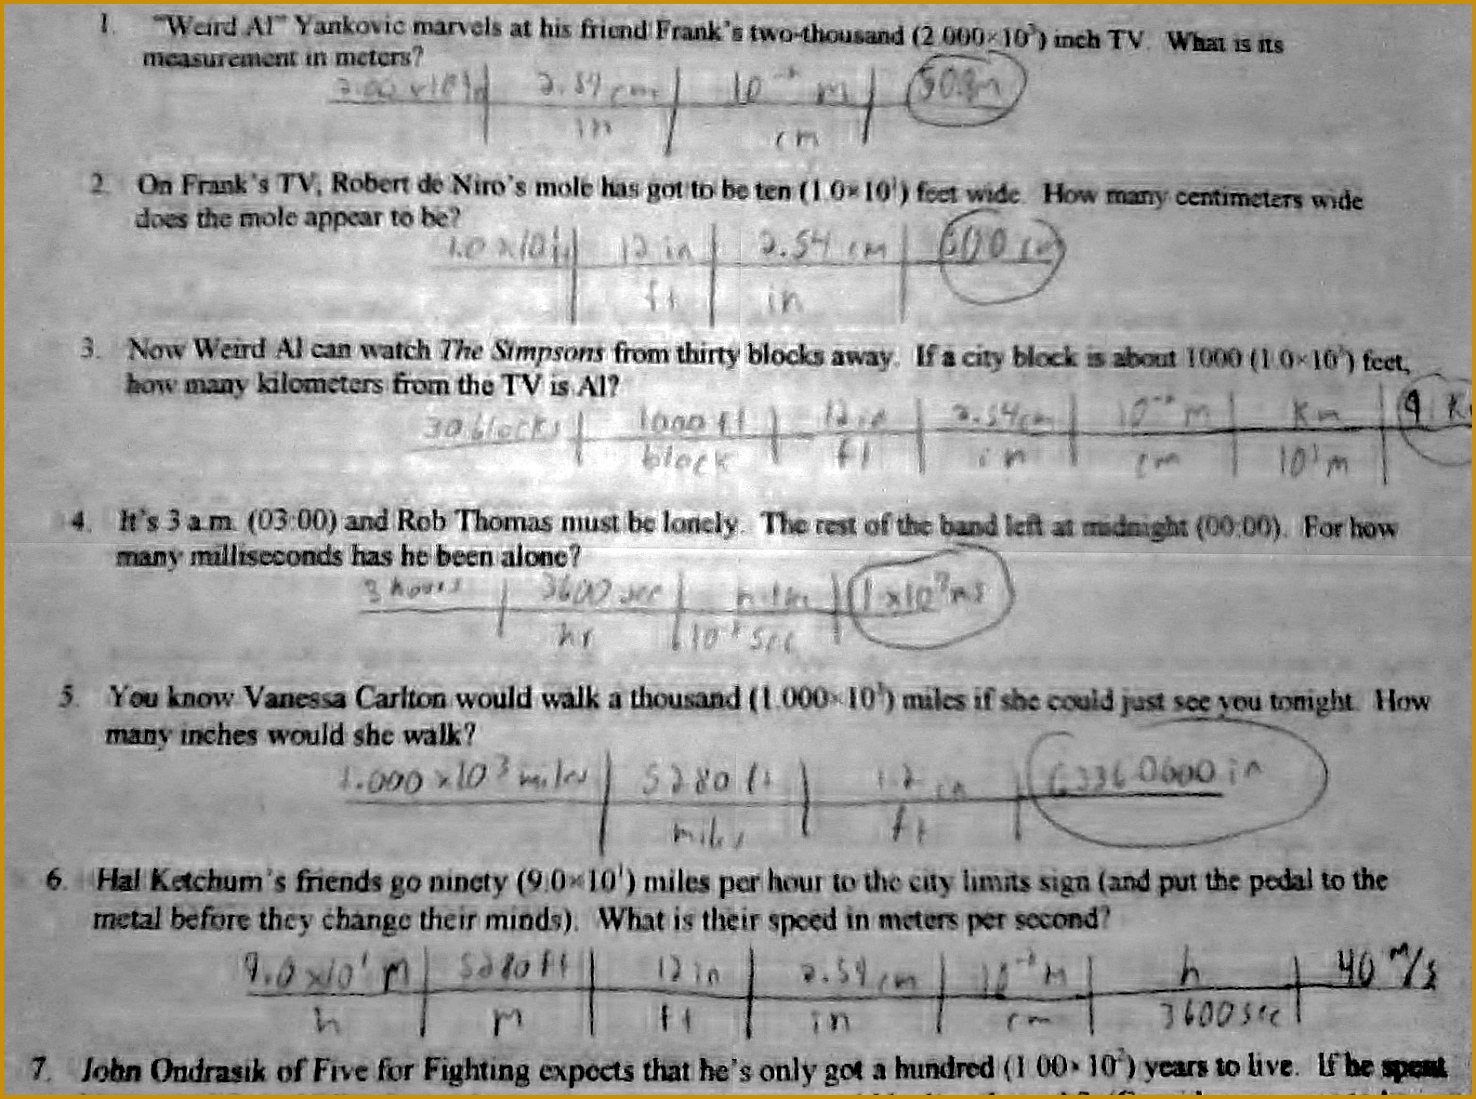 1. "Weird Al" Yankovic marvels at his friend Frank's two-thousand (2.000×10³) inch TV. What is its
measurement in meters?
2.54 cm 10⁻² m 50.8m
in cm
2. On Frank's TV, Robert de Niro's mole has got to be ten (1.0×10¹) feet wide. How many centimeters wide
does the mole appear to be?
1.0 x10¹ 12 in 2.54 cm 600 cm
ft in
3. Now Weird Al can watch The Simpsons from thirty blocks away. If a city block is about 1000 (1.0×10³) feet,
how many kilometers from the TV is Al?
30 blocks 1000 ft 12 in 2.54cm 10⁻² m Km 9
block ft in cm 10³ m
4. It's 3 a.m. (03:00) and Rob Thomas must be lonely. The rest of the band left at midnight (00:00). For how
many milliseconds has he been alone?
3 hours 3600 sec 1x10⁷ms
hr sec
5. You know Vanessa Carlton would walk a thousand (1.000×10³) miles if she could just see you tonight. How
many inches would she walk?
1.000 x10³ miles 5280 ft 12 in 63360000 in
miles ft
6. Hal Ketchum's friends go ninety (9.0×10¹) miles per hour to the city limits sign (and put the pedal to the
metal before they change their minds). What is their speed in meters per second?
9.0 x10¹ M 5280 ft 12 in 2.54 cm 10⁻² M h 40 m/s
h M ft in cm 3600 sec
7. John Ondrasik of Five for Fighting expects that he's only got a hundred (1.00×10²) years to live. If he spent